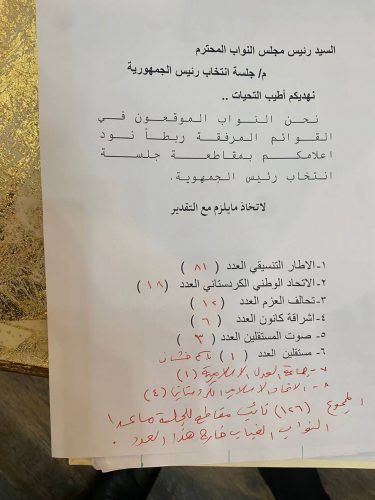 السيد رئيس مجلس النواب المحترم
م/ جلسة انتخاب رئيس الجمهورية
نهديكم أطيب التحيات ..
نحن النواب الموقعون في
القوائم المرفقة ربطاً نود
اعلامكم بمقاطعة جلسة
انتخاب رئيس الجمهوية.
لاتخاذ مايلزم مع التقدير
١- الاطار التنسيقي العدد ( ٨١ )
٢- الاتحاد الوطني الكردستاني العدد ( ١٨ )
٣- تحالف العزم العدد ( ١٢ )
٤- اشراقة كانون العدد ( ٦ )
٥- صوت المستقلين العدد ( ٣ )
٦- مستقلين العدد ( ١ ) باسم خشان
٧- جماعة العدل الاسلامية (١)
٨- الاتحاد الاسلامي الكردستاني (٤)
المجموع (١٢٦) نائب مقاطع للجلسة ماعدا
النواب الغياب خارج هذا العدد .